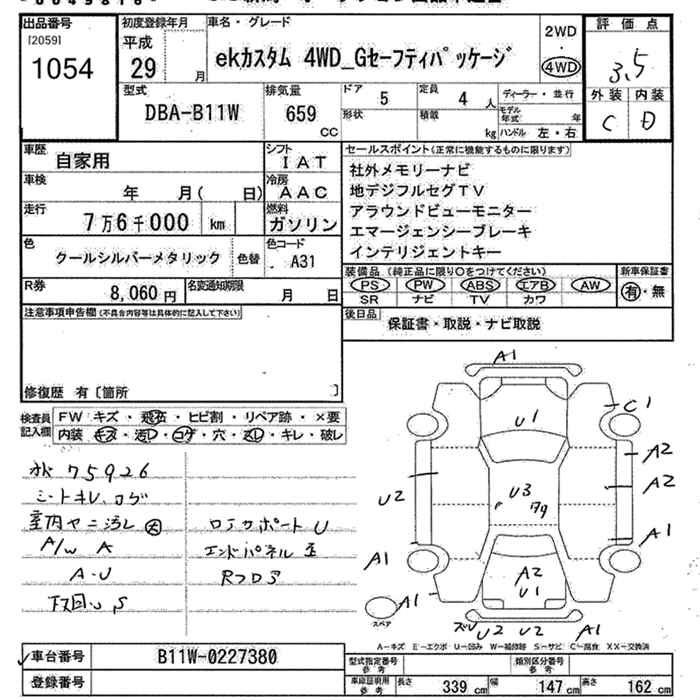 出品番号
[2059]
1054
初度登録年月
平成
29 月
車名・グレード
ekカスタム 4WD_Gセーフティパッケージ
2WD
・
4WD
評価点
3,5
外装 内装
C D
型式
DBA-B11W
排気量
659
CC
ドア 5
定員 4 人
形状
積載
kg
ディーラー・並行
モデル年式 年
ハンドル 左・右
車歴
自家用
シフト
IAT
車検
年 月( 日)
冷房
AAC
走行
7万6千000 km
燃料
ガソリン
色
クールシルバーメタリック
色替
色コード
A31
R券
8,060円
名変通知期限
月 日
セールスポイント(正常に機能するものに限ります)
社外メモリーナビ
地デジフルセグTV
アラウンドビューモニター
エマージェンシーブレーキ
インテリジェントキー
装備品(純正品に限り○をつけてください)
PS PW ABS エアB AW
SR ナビ TV カワ
新車保証書
有・無
後日品
保証書・取説・ナビ取説
注意事項申告欄(不具合内容等は具体的に記入して下さい)
修復歴 有〔箇所 〕
検査員記入欄
FW キズ・飛石・ヒビ割・リペア跡・×要
内装 キズ・汚レ・コゲ・穴・スレ・キレ・破レ
75926
シートキレ、コゲ
室内ヤニ汚レ 大
A/W A
A・U
下回 S
コアサポート U
エンドパネル
Rフロア
A1
C1
U1
A2
A2
U2
U3
A1
A1
A2
U1
A1
U2 U2 A1
スペア
A-キズ E-エクボ U-凹み W-補修跡 S-サビ C-腐食 XX-交換済
車台番号
B11W-0227380
登録番号
型式指定番号
参考
類別区分番号
参考
車庫証明用
参考
長さ 339 cm 幅 147 cm 高さ 162 cm